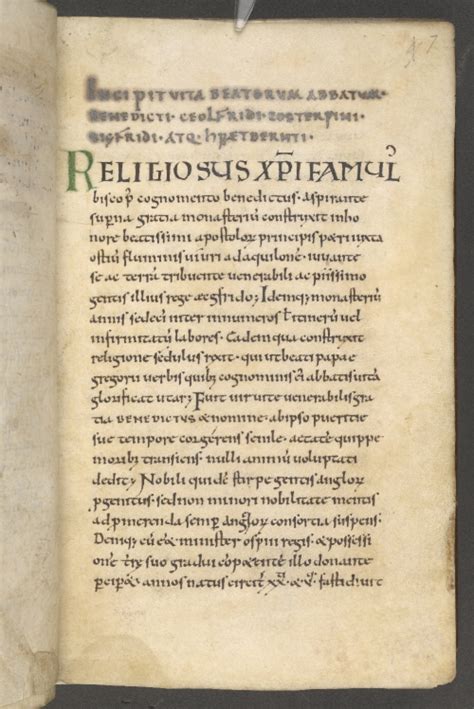 INCIPIT VITA BEATORUM ABBATUM·
BENEDICTI· CEOLFRIDI· EOSTERPINI·
SIGFRIDI· ATQ·
RELIGIOSUS XP̄I FAMUL᾽
biscop̄ cognomento benedictus· aspirante
sup̄na gratia monasteriū construxit inho
nore beatissimi apostoloꝝ principis petri iuxta
ostiū fluminis uiuri adaquilonē· iuuante
se ac terrā tribuente uenerabili ac piissimo
gentis illius rege ecgfrido; Idemq; monasteriū
annis sedecī inter innumeros ł itinerū uel
infirmitatū labores· eadem qua construxit
religione sedulus rexit· qui ut beati papae
gregorii uerbis quibꝫ cognominis ei᾽ abbatis uitā
glorificat utar; Fuit uir uitę uenerabilis gra
tia BENEDICTUS & nomine· abipso pueritie
sue tempore cor gerens senile· aetatē quippe
moribꝫ transiens· nulli animū voluptati
dedit; Nobili quidē stirpe gentis angloꝝ
p̱genitus· sed non minori nobilitate mentis
ad p̱merenda semp̱ angloꝝ consortia suspens᾽
Deniq; cū eēt minister ospiu regis· & possessi
onē tr̄ę suo gradui cōpetentē illo donante
perciper&· annos natus circit̄ xxti & v· fastidiuit